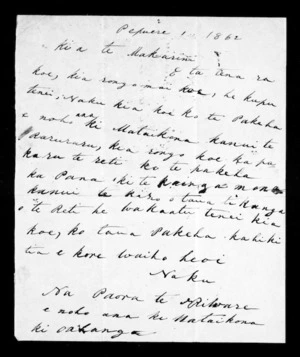 Pepuere 1 1862
Kia a te Makarini
E ta tena ra
koe, kia rongo mai koe, he kupu
tenei, Naku kia koe ko te Pakeha
e noho ana ki Mataikona kanui te
raruraru, kia rongo koe ka pa
karu te reti ki te pakeha
ka Pana ki te kainga
kanui te kino o taua tikanga
o te Reti he wakaatu tenei kia
koe, ko taua Pakeha kahiki
tia e kore waiho heoi
Naku
Na Paora te
e noho ana ki Mataikona
ki